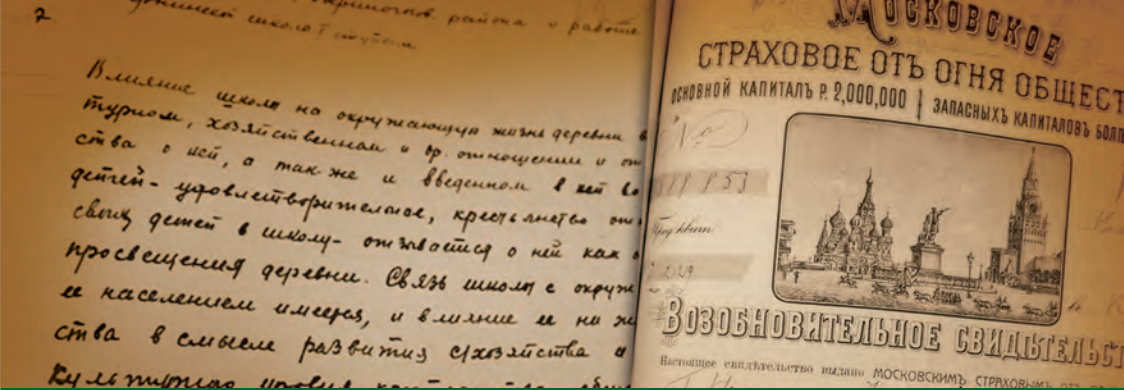 2
района о работе
школы I ступени
Влияние школы на окружающую жизнь деревни в
турном, хозяйственном и др. отношении и от
ства о ней, а так-же и введенном в ней во
детей - удовлетворительное, крестьянство
своих детей в школу - отзывается о ней как
просвещения деревни. Связь школы с окруж
ее населением имеется, и влияние ее на
ства в смысле развития с/хозяйства и
культурного уровня
МОСКОВСКОЕ
СТРАХОВОЕ ОТЪ ОГНЯ ОБЩЕСТ
ОСНОВНОЙ КАПИТАЛЪ Р. 2,000,000 | ЗАПАСНЫХЪ КАПИТАЛОВЪ БОЛ
№
ВОЗОБНОВИТЕЛЬНОЕ СВИДѢТЕЛЬСТ
Настоящее свидѣтельство выдано МОСКОВСКИМЪ СТРАХОВЫМЪ